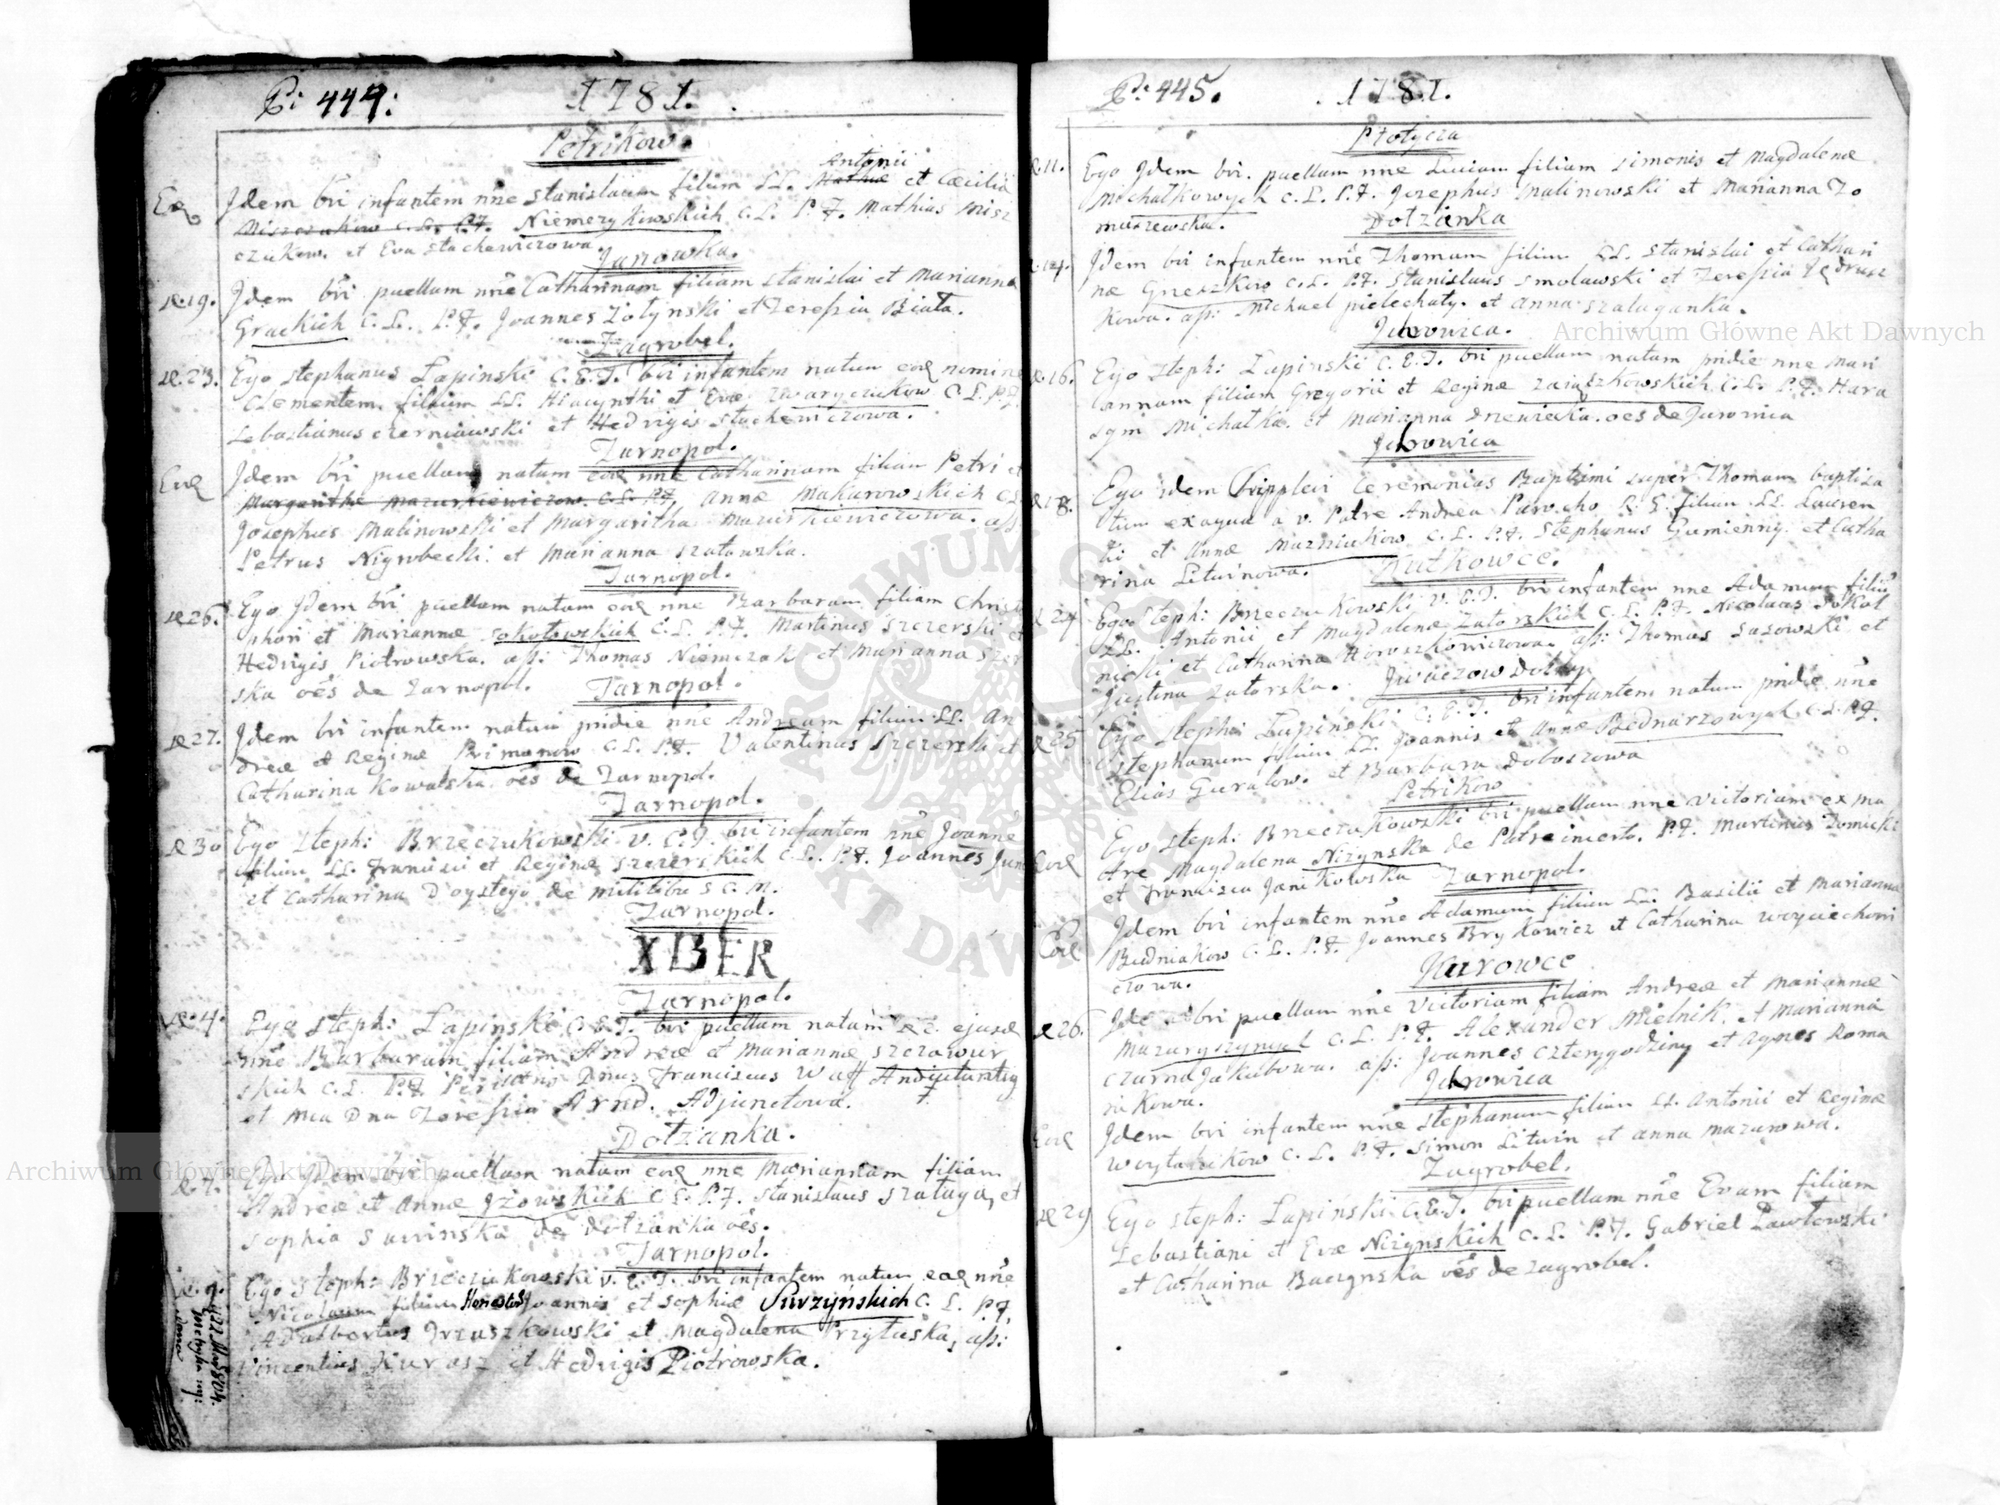 Pi 444: 1781.
Petrikow.
Eod Jdem bvi infantem nne Stanislaum filium LL. Mathiæ Antonii et Cæcilia
Miszczukow C. L. P.F. Niemerykowskich C. L. P. F. Mathias Misz
czukow. et Eva Stachewiczowa.
Janowka.
d. 19. Jdem bvi puellam nne Catharinam filiam Stanislai et Marianna
Grackich C. L. P.F. Joannes Zotynski et Teressia Biata.
Zagrobel.
d. 23. Ego Stephanus Lapinski C.E.T. bvi infantem natum eod nomine
Clementem filium LL. Hiacynthi et Evæ Zwaryczukow C. L. P.F.
Sebastianus Czerniawski et Hedvigis Stachewiczowa.
Tarnopol.
Eod Jdem bvi puellam natam eod nne Catharinam filiam Petri et
Margarithæ Mazurkiewiczow. C. L. P.F. Annæ Makarowskich C L
Josephus Malinowski et Margaritha Mazurkiewiczowa. ass:
Petrus Nigrobecki. et Marianna Szatowska.
Tarnopol.
d 26. Ego Jdem bvi puellam natam eod nne Barbaram filiam Christo
phori et Mariannæ Sokotowskich C. L. P.F. Martinus Szczerski et
Hedvigis Piotrowska. ass: Thomas Niemczak et Marianna Szczer
ska oes de Tarnopol.
Tarnopol.
d 27. Jdem bvi infantem natum pridie nne Andream filium LL. An
dreæ et Reginæ Primanow C. L. P.F. Valentinus Szczerski et
Catharina Kowalska oes de Tarnopol.
Tarnopol.
d 30 Ego Steph: Brzeczukowski v. C.T. bvi infantem nne Joanne
filium LL. Francisci et Reginæ Szczerskich C. L. P.F. Joannes
et Catharina Doystego de militibus C. M.
Tarnopol.
XBER
Tarnopol.
d. 4. Ego Steph: Lapinski C.E.T. bvi puellam natam d 2. ejusd
nne Barbaram filiam Andreæ et Mariannæ Szczawur
skich C. L. P.F. Dnus Franciscus Waff
et Mca Dna Teressia Arnd. Adjunctowa.
Dotzanka.
d. 7. Ego Jdem bvi puellam natam eod nne Mariannam filiam
Andreæ et Annæ Jzowskich C. L. P.F. Stanislaus Szataya, et
Sophia Sawinska de Dotzanka oes.
Tarnopol.
d. 9. Ego Steph: Brzeczukowski v. C.T. bvi infantem natum eod nne
Nicolaum filium Honestor Joannis et Sophiæ Surzynskich C. L. P.F.
Adalbertus Jrzuszkowski et Magdalena Przytuska, ass:
Vincentius Kurasz et Hedvigis Piotrowska.
Pi. 445. 1781.
Ptotycza
d. 11. Ego Jdem bvi. puellam nne Luciam filiam Simonis et Magdalenæ
Michatkowych C. L. P.F. Josephus Malinowski et Marianna To
maszewska.
Dotzanka
d. 14. Jdem bvi infantem nne Thomam filium LL. Stanislai et Cathari
næ Greszkow C. L. P.F. Stanislaus Smolawski et Teressia Jedrusz
kowa. ass: Michael pielechaty. et Anna Szalaganka.
Jehrowica.
d. 16. Ego Steph: Lapinski C.E.T. bvi puellam natam pridie nne Mari
annam filiam Gregorii et Reginæ Zaiaszkowskich C. L. P.F. Hara
sym Michatka. et Marianna Drewiecka. oes de Jurowica
Jehrowica
d 18. Ego idem Supplevi Ceremonias Baptismi super Thomam baptisa
tum ex aqua a v. Patre Andrea Parocho R. G. filium LL. Lauren
tii et Annæ Mazniukow C. L. P.F. Stephanus Gumienny. et Catha
rina Lituinowa.
Kutkowce.
d 24 Ego Steph: Brzeczukowski v. C.T. bvi infantem nne Adamum filiu
LL. Antonii et Magdalenæ Zatorskich C. L. P.F. Nicolaus Sokol
nicki et Catharina Horoszkowiczowa. ass: Thomas Sasowski et
Justina Zatorska.
Jwaczow Dolny.
d 25 Ego Steph: Lapinski C.E.T. bvi infantem natum pridie nne
Stephanum filium LL. Joannis et Annæ Bednarzowych C. L. P.F.
Elias Guralow. et Barbara Doboszowa
Petrikow
Eod Ego Steph: Brzeczukowski bvi puellam nne Victoriam ex ma
tre Magdalena Nizynska de Patre incerto. P.F. Martinus Tomicki
et Francisca Janikowska
Tarnopol.
Eod Jdem bvi infantem nne Adamum filium LL. Basilii et Marianna
Budniakow C. L. P.F. Joannes Brykowicz et Catharina Woyciechowi
czowa.
Kurowce
d 26. Jde bvi puellam nne Victoriam filiam Andreæ et Mariannæ
Mazuryszynych C. L. P.F. Alexander Mielnik. et Marianna
Czarna Jakubowa. ass: Joannes Czterygodziny et Agnes Roma
nikowa.
Jehrowica
Eod Jdem bvi infantem nne Stephanum filium LL. Antonii et Reginæ
Woytasikow C. L. P.F. Simon Lituin et Anna Mazurowa.
Zagrobel.
d 29 Ego Steph: Lapinski C.E.T. bvi puellam nne Evam filiam
Sebastiani et Evæ Nizynskich C. L. P.F. Gabriel Pawtowski
et Catharina Baczynska oes de Zagrobel.
Archiwum Główne Akt Dawnych
Archiwum Główne Akt Dawnych
ARCHIWUM GŁÓWNE AKT DAWNYCH